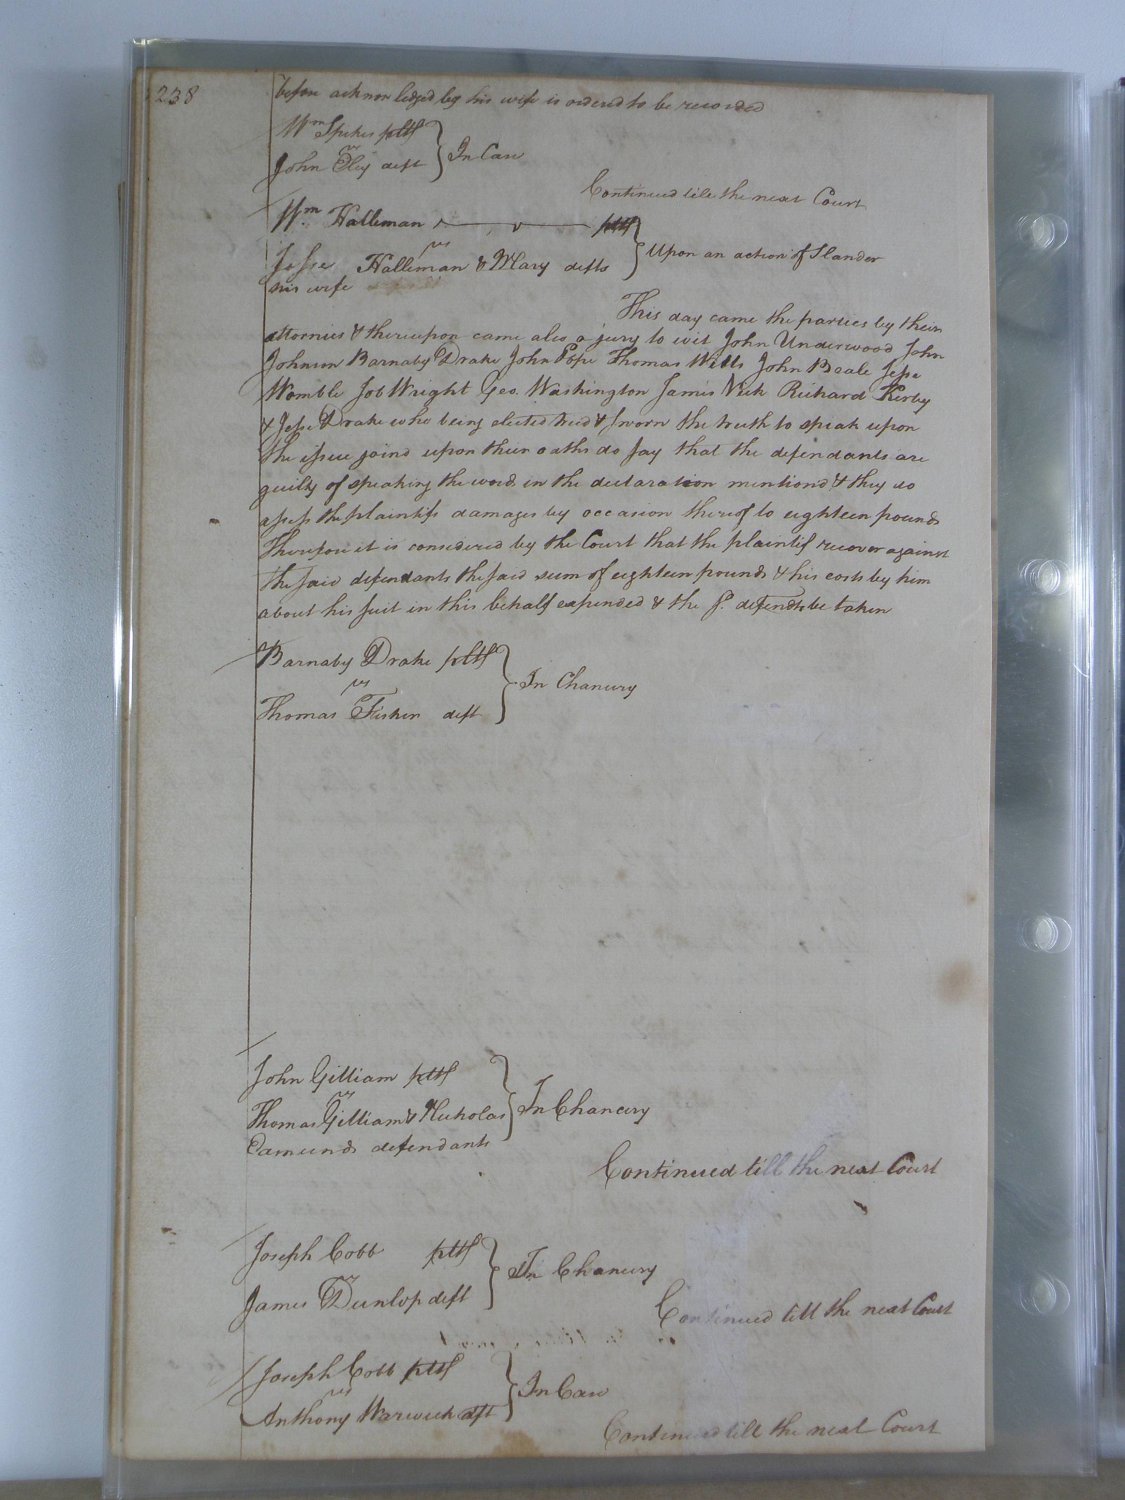 238
before acknowledged by his wife is ordered to be recorded
Wm Spikes pltf
vs
John Eley deft
In Case
Continued till the next Court
Wm Halleman pltf
vs
Jesse Halleman & Mary defts
his wife
Upon an action of Slander
This day came the parties by their
attornies & thereupon came also a jury to wit John Underwood John
Johnson Barnaby Drake John Pope Thomas Wills John Beale Jesse
Womble Job Wright Geo. Washington James Vick Richard Kirby
& Jesse Drake who being elected tried & sworn the truth to speak upon
the issue joind upon their oaths do say that the defendants are
guilty of speaking the words in the declaration mentiond & they do
assess the plaintifs damages by occasion thereof to eighteen pounds
Therefore it is considered by the Court that the plaintif recover against
the said defendants the said sum of eighteen pounds & his costs by him
about his suit in this behalf expended & the sd. defendts be taken
Barnaby Drake pltf
vs
Thomas Fisher deft
In Chancery
John Gilliam pltf
vs
Thomas Gilliam & Nicholas
Edmunds defendants
In Chancery
Continued till the next Court
Joseph Cobb pltf
vs
James Dunlop deft
In Chancery
Continued till the next Court
Joseph Cobb pltf
vs
Anthony Warwick deft
In Case
Continued till the next Court